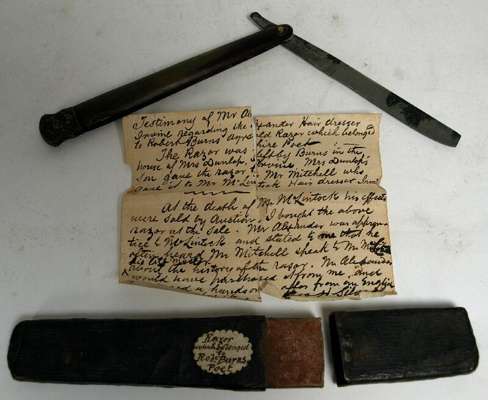 Testimony of Mr Alexander Hair dresser
Irvine regarding the old Razor which belonged
to Robert Burns Ayrshire Poet
The Razor was left by Burns in the
house of Mrs Dunlop, Irvine Mrs Dunlop's
Son gave the razor to Mr Mitchell who
gave it to Mr McLintock Hair dresser
At the death of Mr McLintock his effects
were sold by Auction. I bought the above
razor at the Sale. Mr Alexander was appren-
tice to McLintock and stated to me that he
often heard Mr Mitchell speak to Mr
the history of the razor. Mr Alexander
would have purchased from me, and
Razor
which belonged
to
Robt Burns
Poet